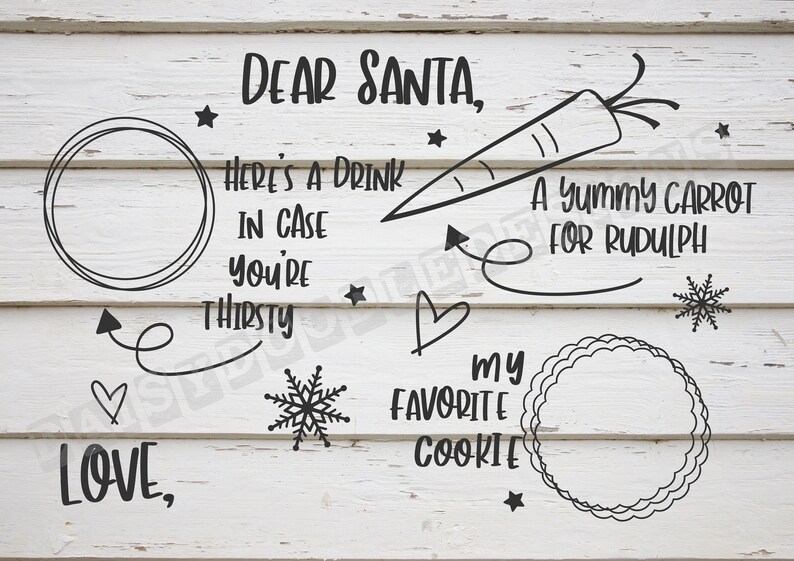 DEAR SANTA,
HERE'S A DRINK
IN CASE
YOU'RE
THIRSTY
A YUMMY CARROT
FOR RUDULPH
MY
FAVORITE
COOKIE
LOVE,